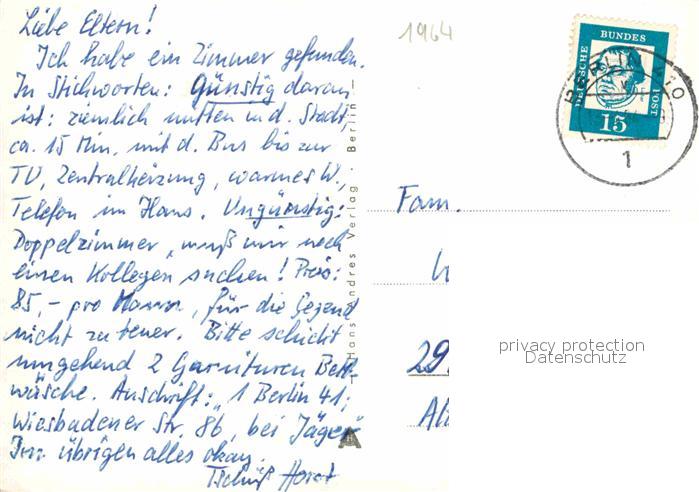 Liebe Eltern!
Ich habe ein Zimmer gefunden.
In Stichworten: Günstig daran
ist: ziemlich mitten in d. Stadt,
ca. 15 Min. mit d. Bus bis zur
TU, Zentralheizung, warmes W.,
Telefon im Haus. Ungünstig:
Doppelzimmer, muß mir noch
einen Kollegen suchen! Preis:
85,- pro Mann, für die Gegend
nicht zu teuer. Bitte schickt
umgehend 2 Garnituren Bett-
wäsche. Anschrift: 1 Berlin 41,
Wiesbadener Str. 86, bei Jäger
Im übrigen alles okay.
Tschüß Horst
Hans Andres Verlag · Berlin
1964
DEUTSCHE BUNDESPOST
15
BERLIN
1
Fam.
29
privacy protection
Datenschutz